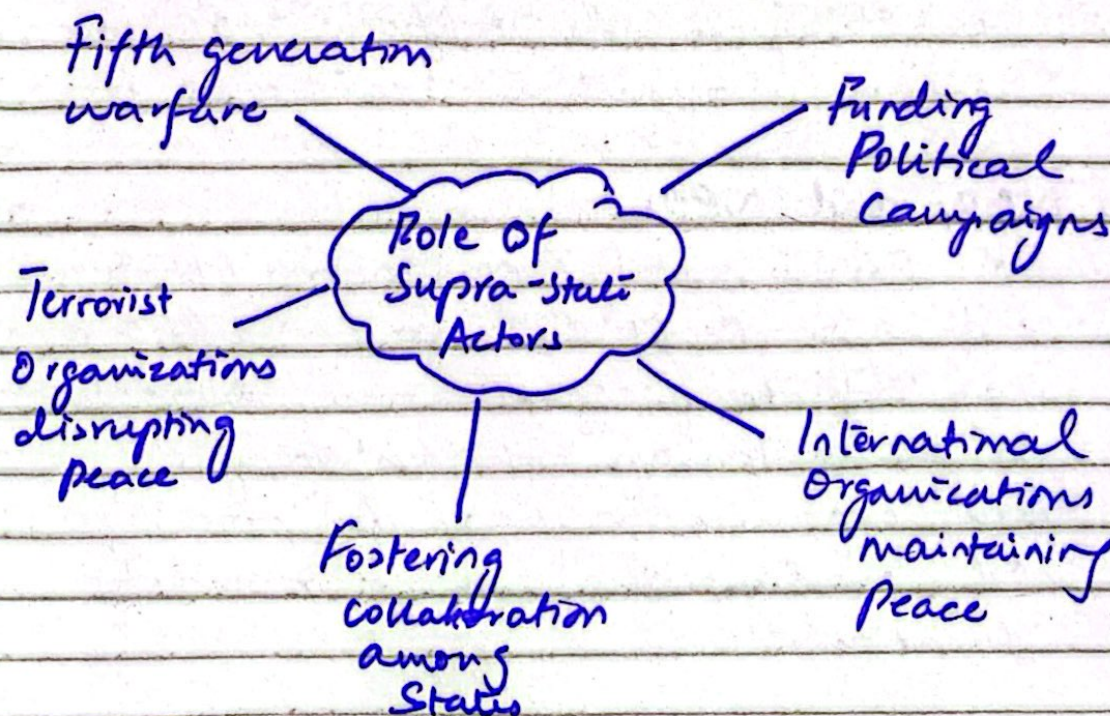 Fifth generation
warfare
Funding
Political
Campaigns
Role Of
Supra-State
Actors
Terrorist
Organizations
disrupting
Peace
International
Organizations
maintaining
Peace
Fostering
collaboration
among
States